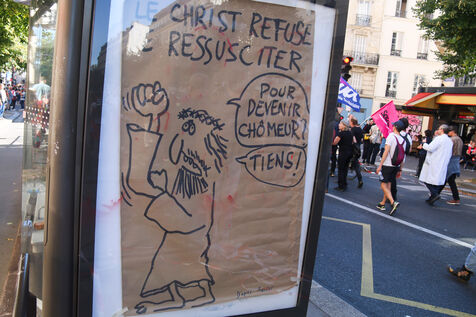 LE CHRIST REFUSE
E RESSUSCITER
POUR
DEVENIR
CHÔMEUR?
TIENS!